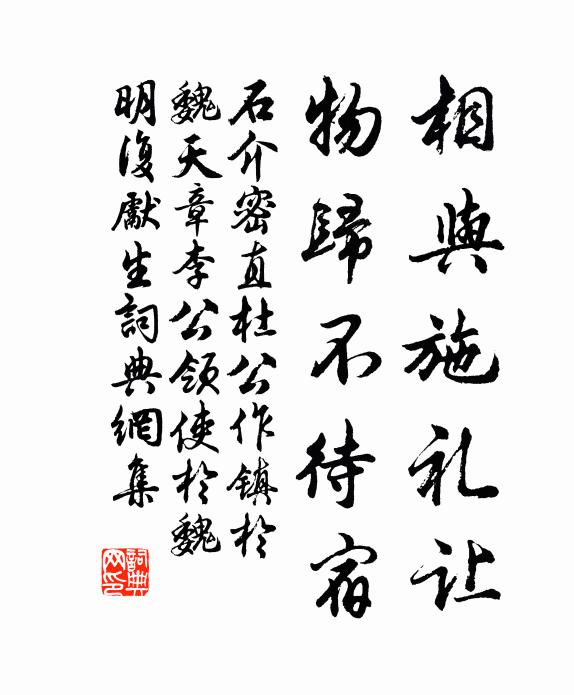 相與施礼让
物歸不待宿
石介密直杜公作鎮於
魏天章李公領使於魏
明復獻生詞典網集
詞典
网印